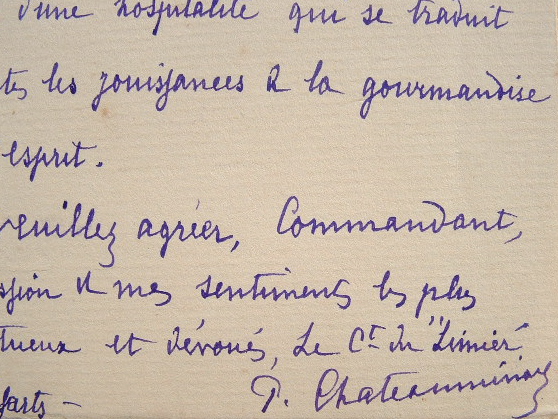 d'une hospitalité qui se traduit
tes les jouissances de la gourmandise
esprit.
veuillez agréer, Commandant,
ssion de mes sentiments les plus
tueux et dévoués, Le Ct du "Limier"
P. Chateauminois
farts —